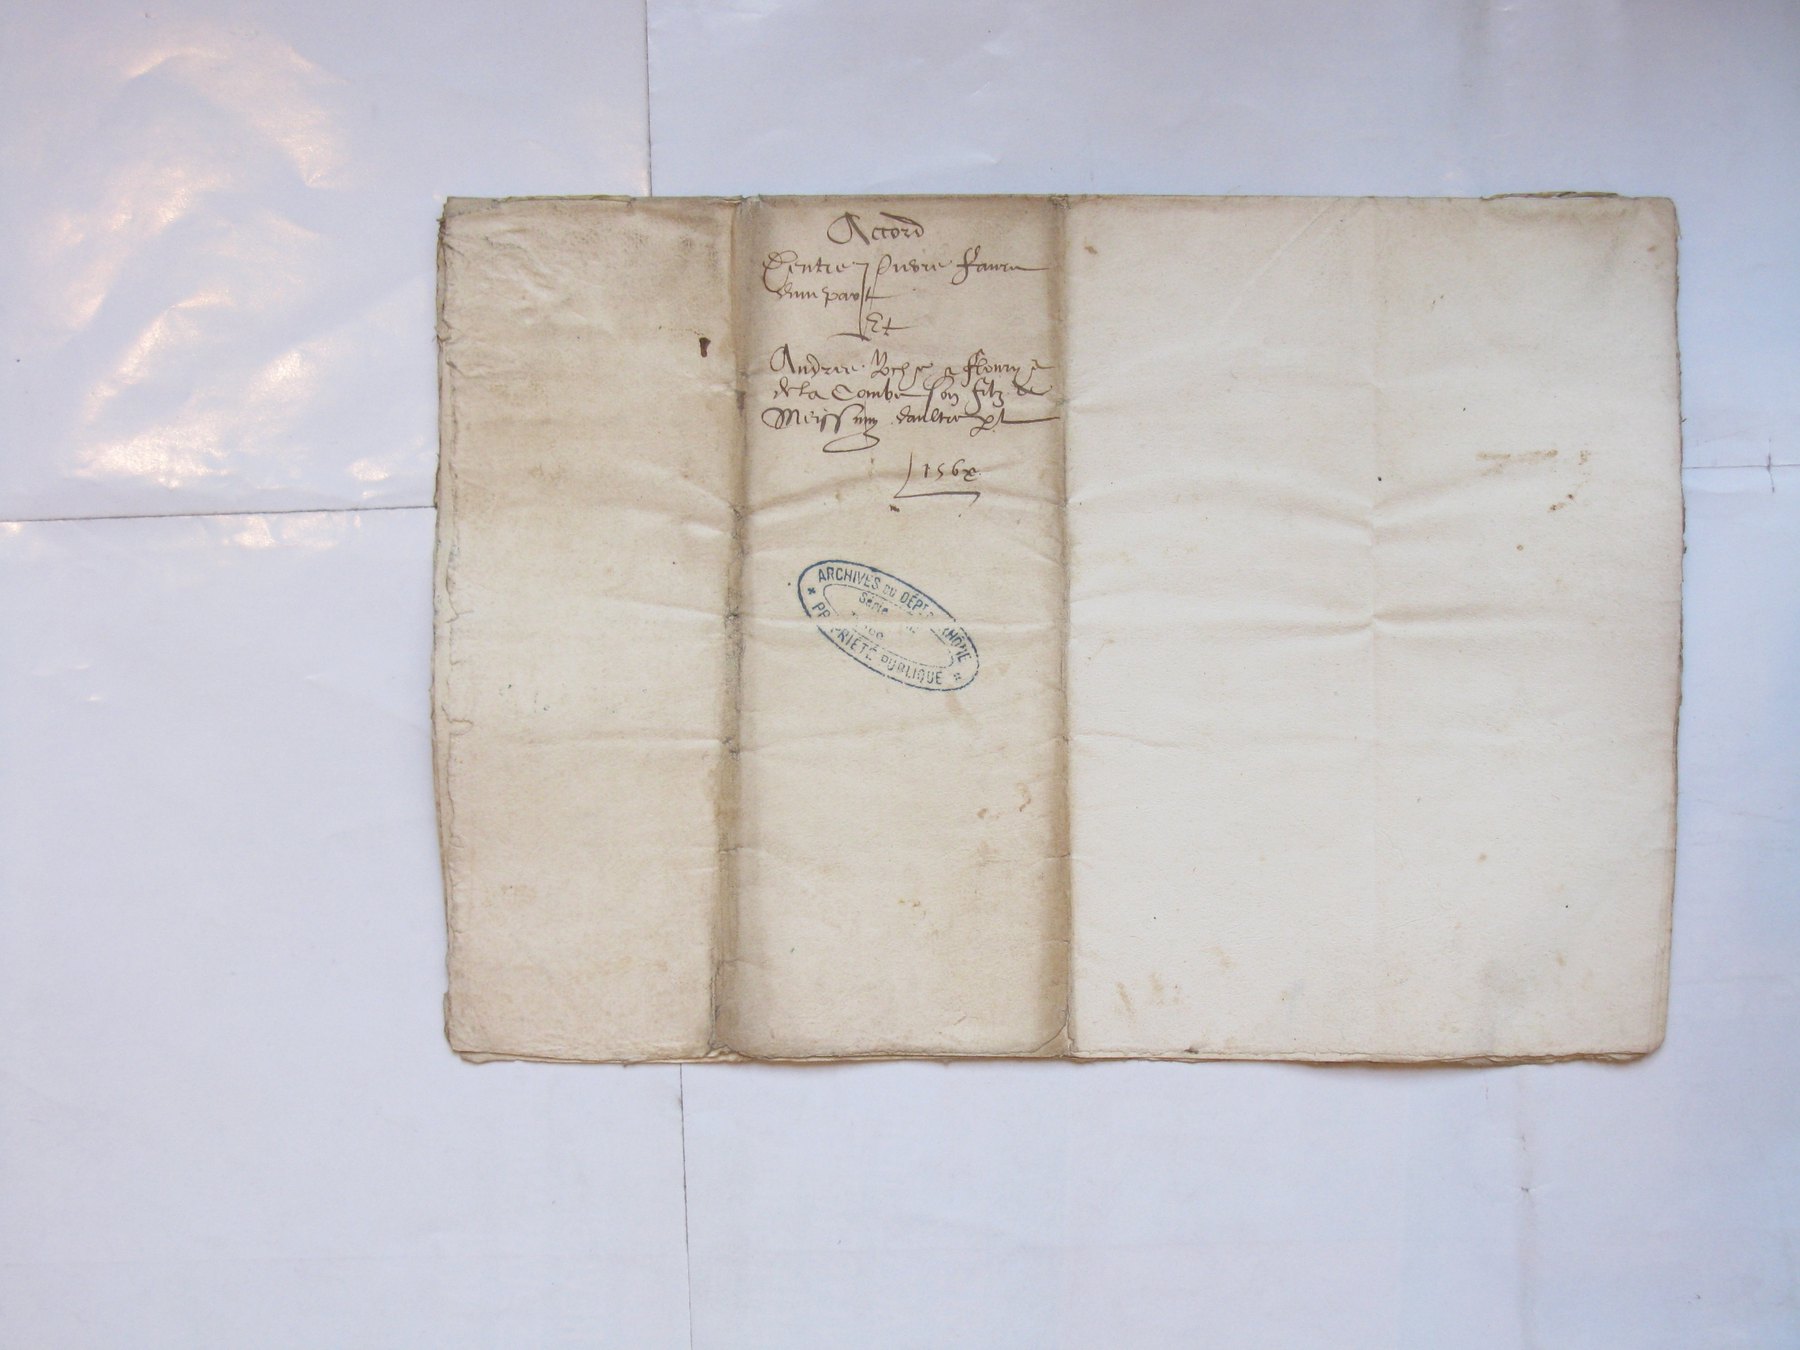 Accord
Dentre Pierre Faure
dune part
Et
Andree Roche & Fleury
de la Combe son filz de
Meissimy daultre pt
156
ARCHIVES DU DÉPT DU RHÔNE
Série
PROPRIÉTÉ PUBLIQUE